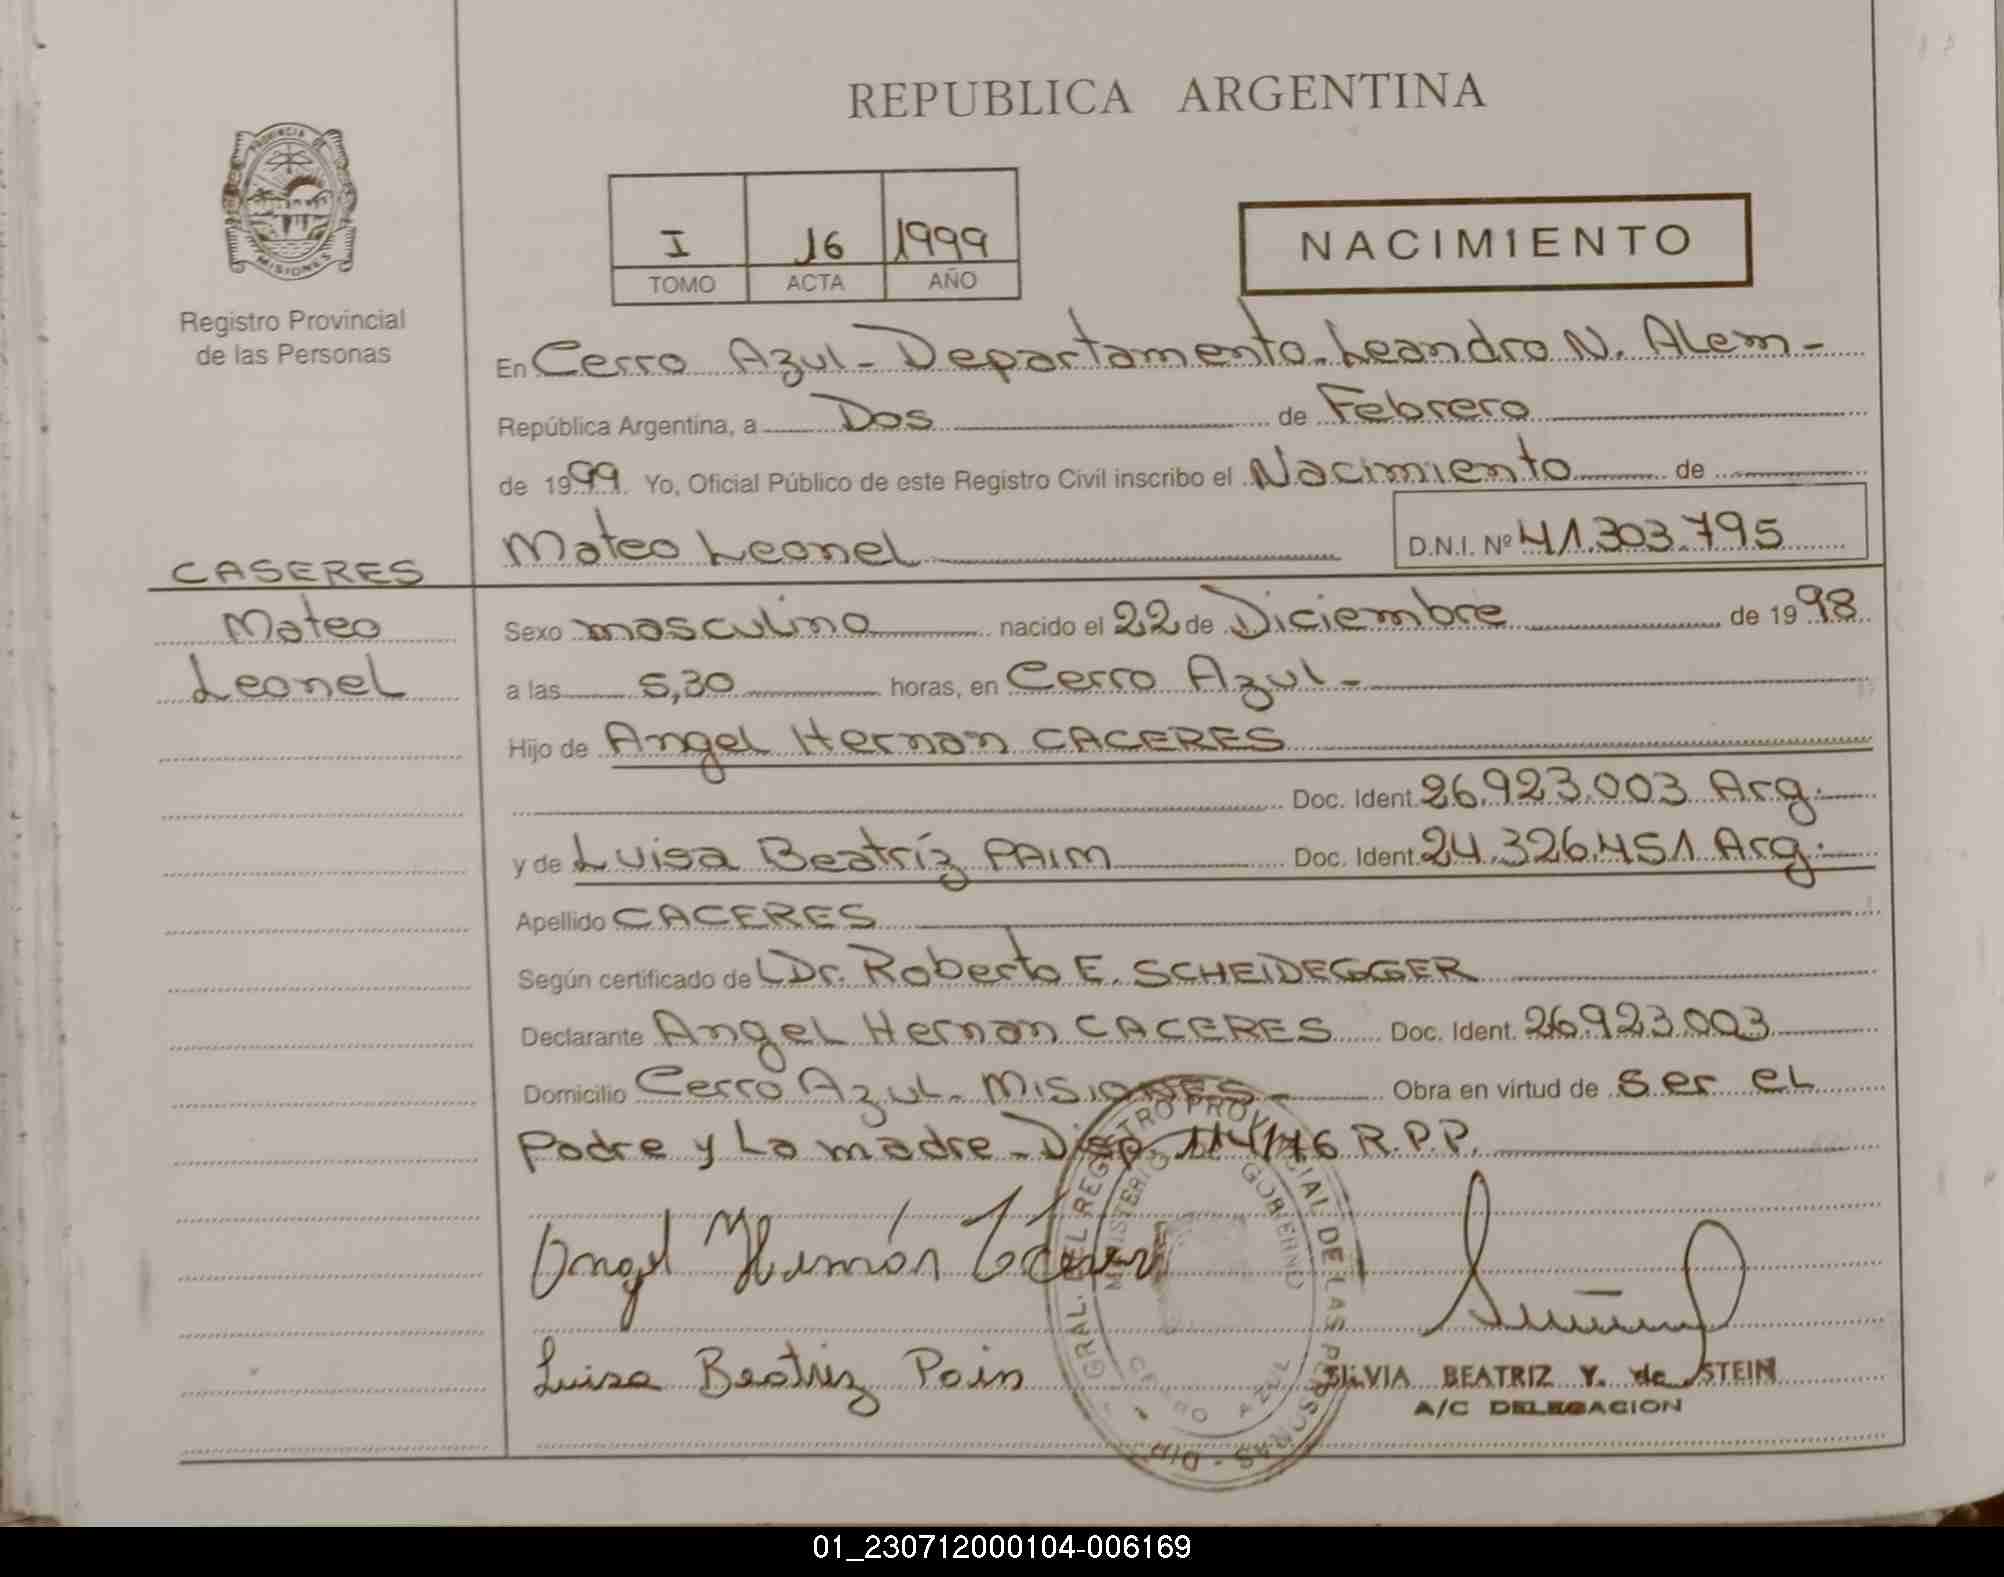 REPUBLICA ARGENTINA
PROVINCIA DE MISIONES
Registro Provincial
de las Personas
I 16 1999
TOMO ACTA AÑO
NACIMIENTO
En Cerro Azul - Departamento Leandro N. Alem -
República Argentina, a Dos de Febrero
de 1999. Yo, Oficial Público de este Registro Civil inscribo el Nacimiento de
Mateo Leonel D.N.I. Nº 41.303.795
CASERES
Mateo
Leonel
Sexo masculino nacido el 22 de Diciembre de 1998
a las 5,30 horas, en Cerro Azul -
Hijo de Angel Hernan CACERES
Doc. Ident. 26.923.003 Arg.
y de Luisa Beatríz PAIM Doc. Ident. 24.326.451 Arg.
Apellido CACERES
Según certificado de Dr. Roberto E. SCHEIDEGGER
Declarante Angel Hernan CACERES Doc. Ident. 26.923.003
Domicilio Cerro Azul - MISIONES - Obra en virtud de ser el
Padre y La madre - Disp. 114/76 R.P.P.
Angel Hernán
Luisa Beatriz Paim
GRAL. DEL REGISTRO PROVINCIAL DE LAS PERSONAS - DIR.
MINISTERIO DE GOBIERNO
CERRO AZUL
SILVIA BEATRIZ Y. de STEIN
A/C DELEGACION
01_230712000104-006169